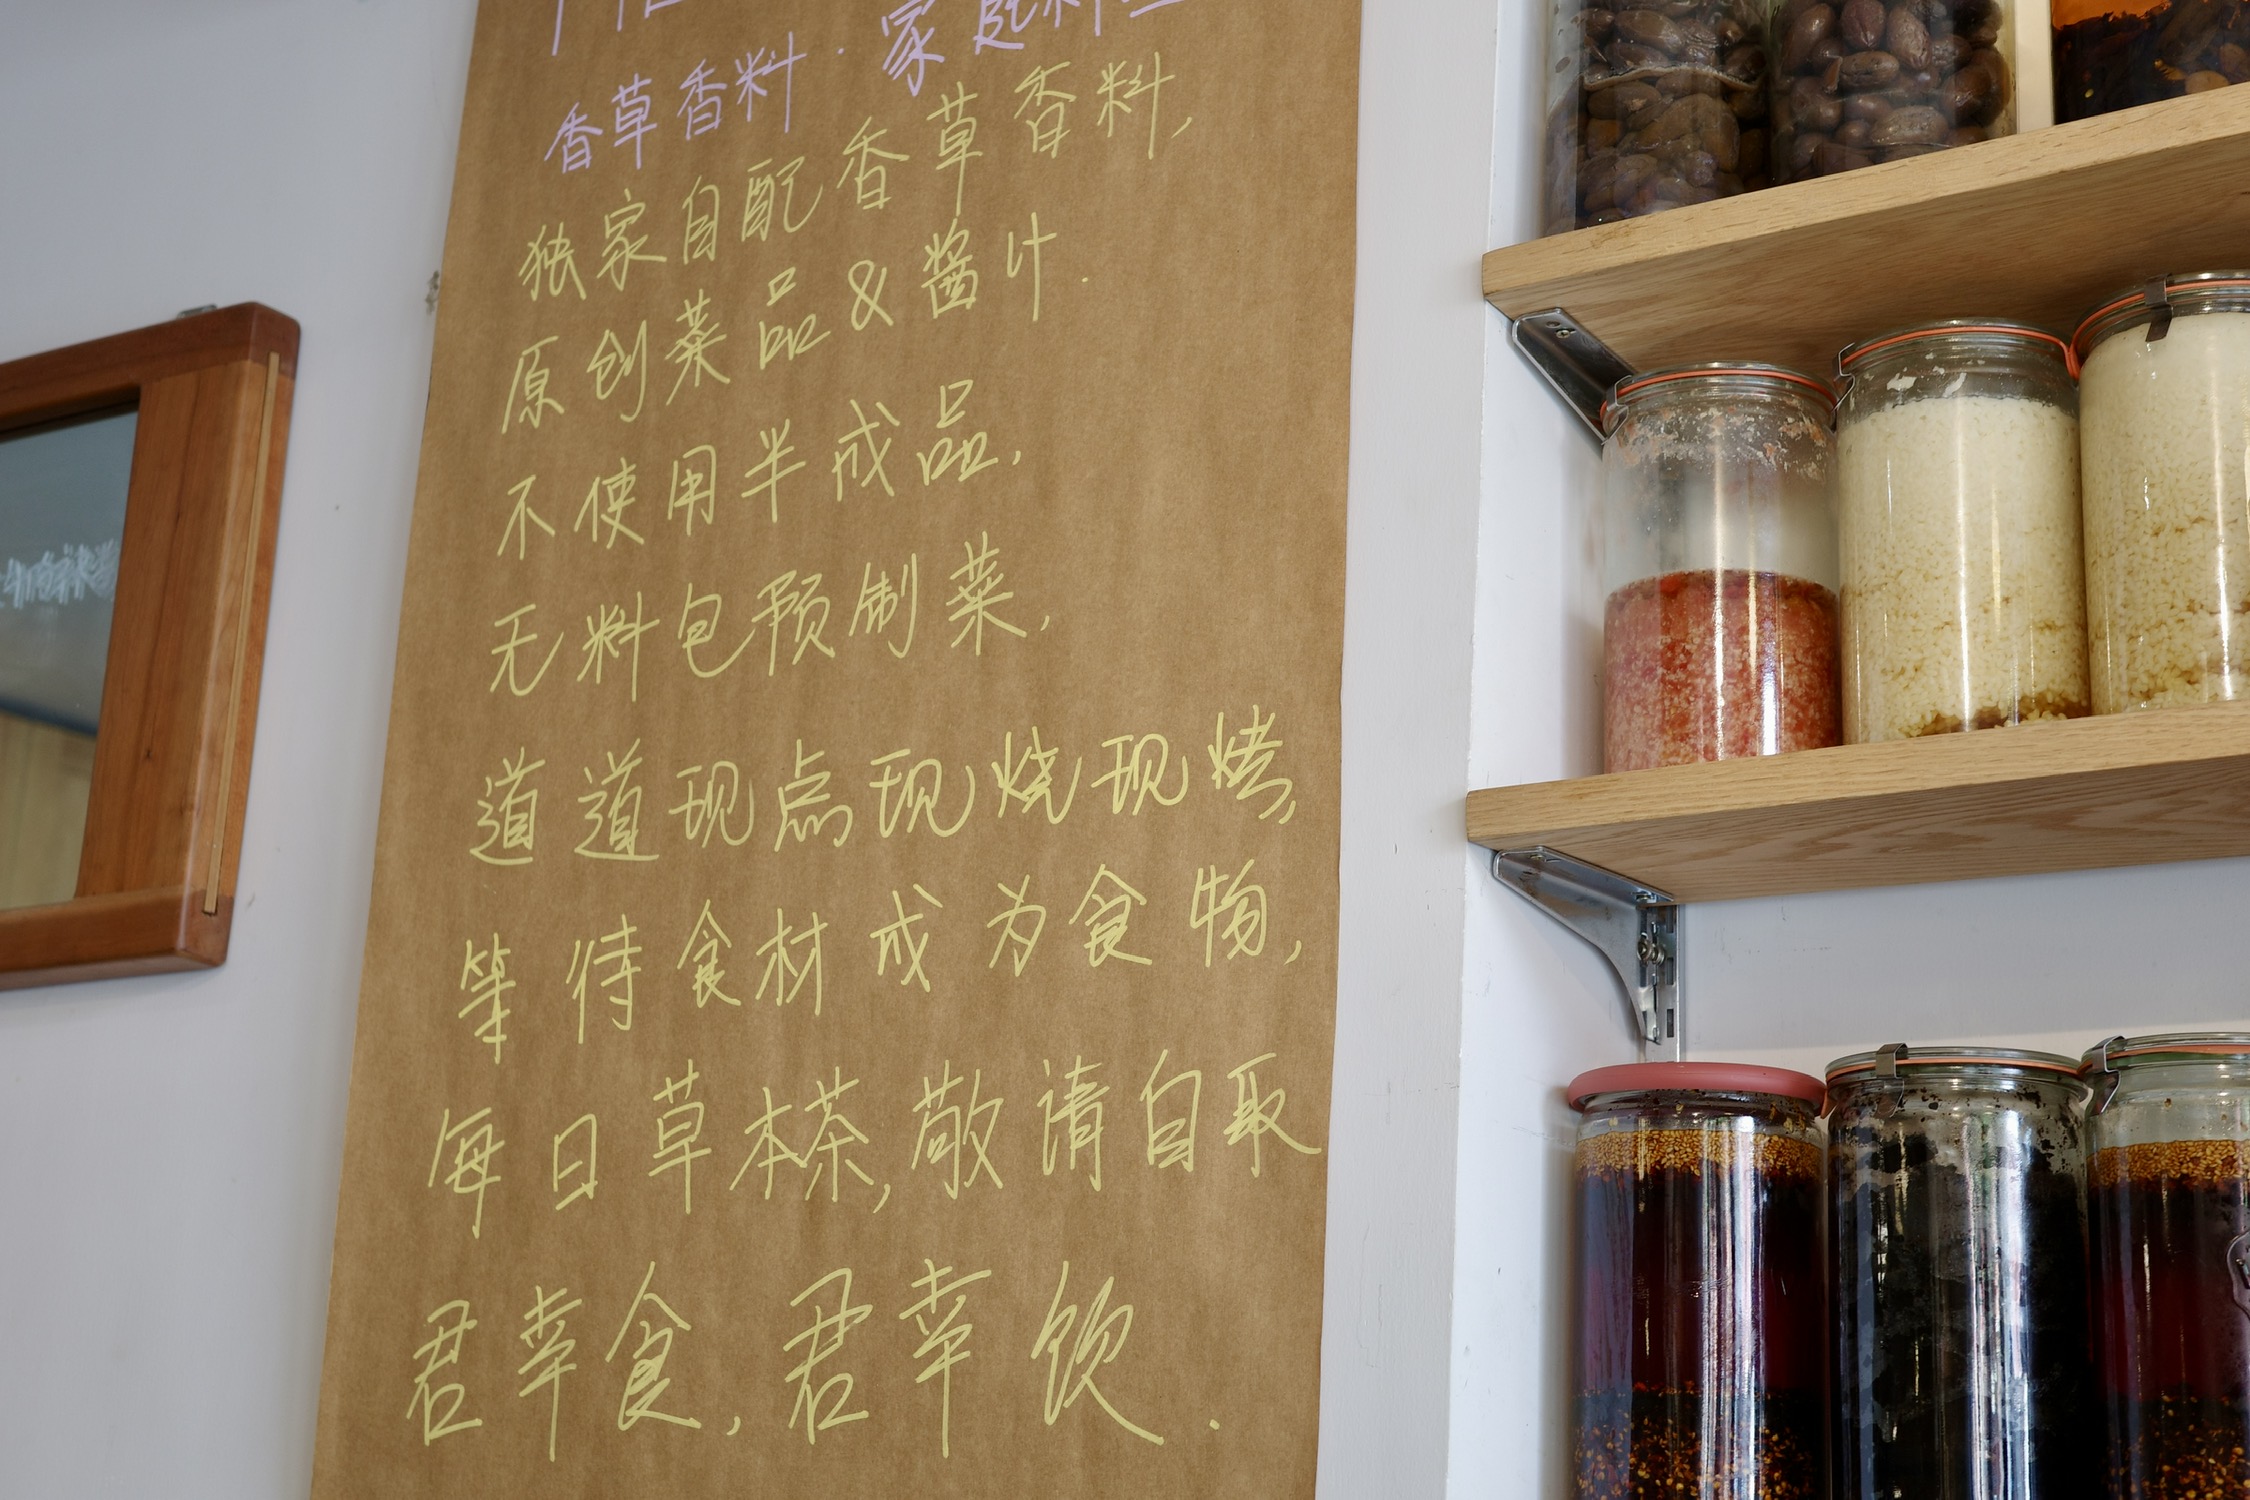 香草香料·家庭料理
独家自配香草香料,
原创菜品&酱汁.
不使用半成品,
无料包预制菜,
道道现点现烧现烤,
等待食材成为食物,
每日草本茶,敬请自取
君幸食,君幸饮.